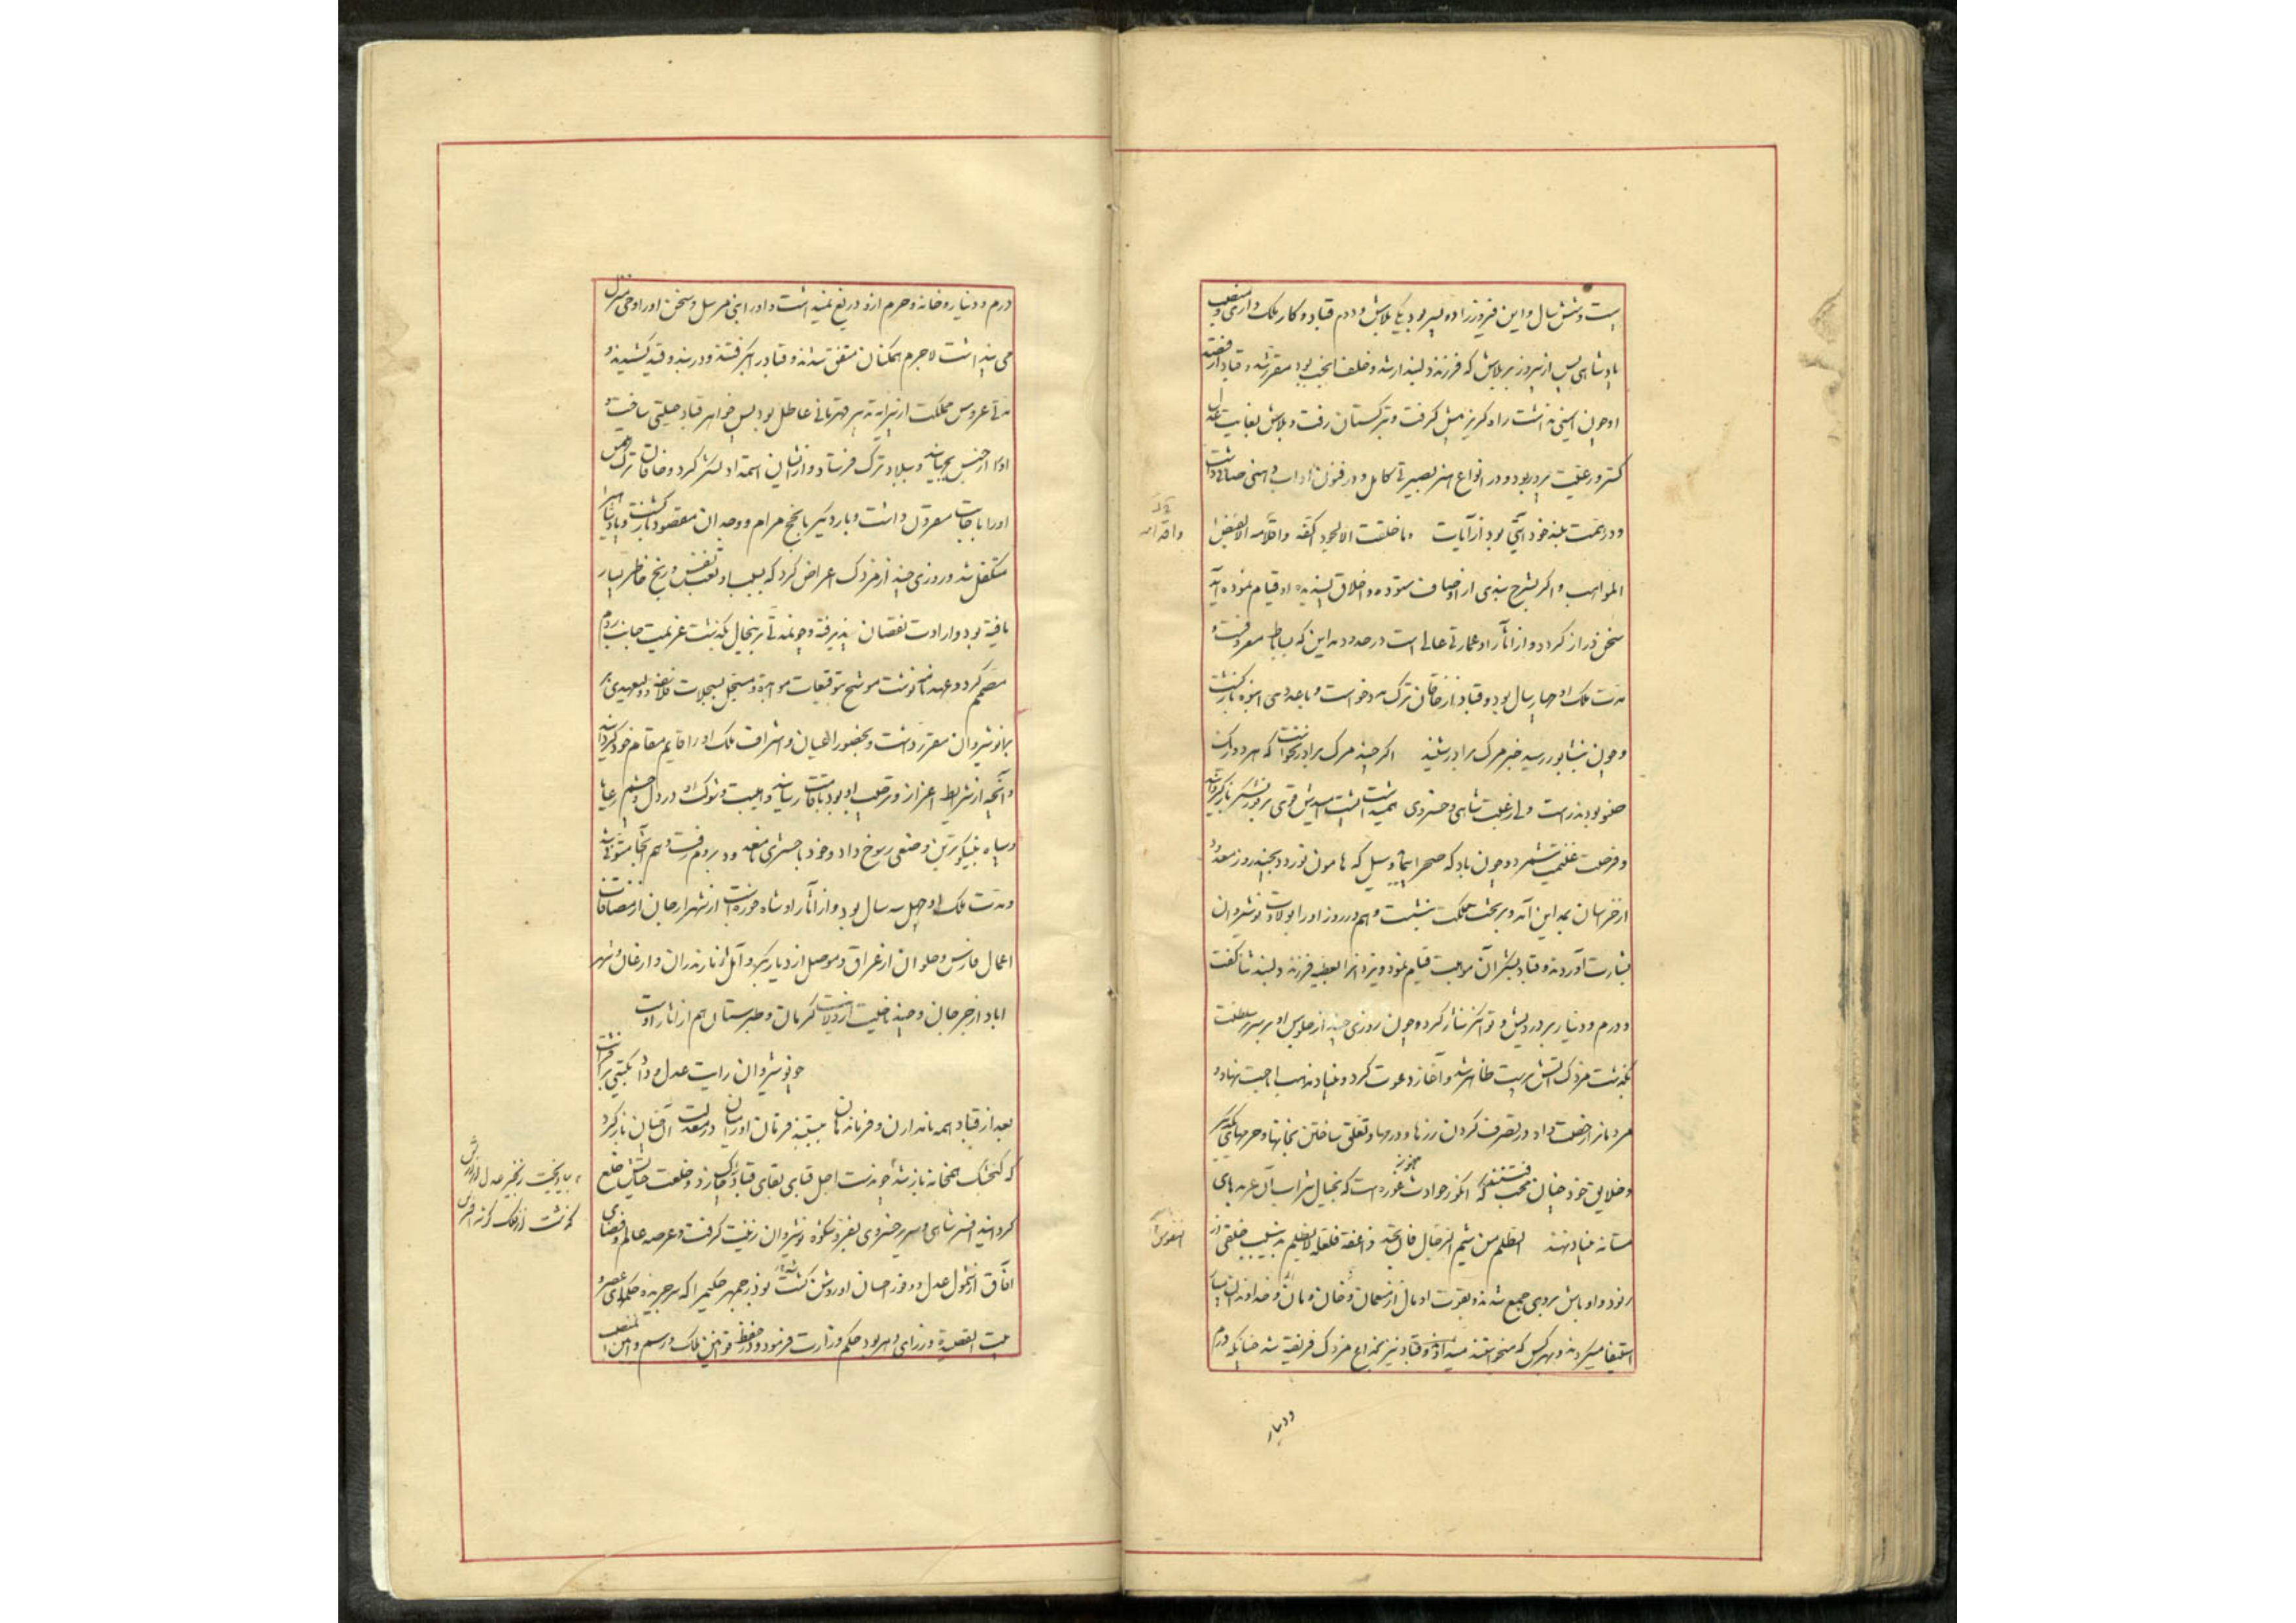 بیست و شش سال و این فیروز را دو پسر بود یکی بلاش و دوم قباد و کار ملک داری و منصب
پادشاهی پس از فیروز بر بلاش که فرزند دلبند ارشد و خلف انجب بود مقرر شد و قباد از قصد
او چون ایمنی نداشت راه گریز پیش گرفت و بترکستان رفت و بلاش بغایت عدل
گستر و رعیت پرور بود و در انواع هنر بصیرتی کامل و در فنون آداب ذهنی صافی داشت
و در همت بلند خود آیتی بود از آیات و ما خلقت الا لجود اکفه و اقدامه الا
المواهب و اگر بشرح بندی از اوصاف ستوده و اخلاق پسندیده او قیام نموده آید
سخن دراز گردد و از آثار او عمارتی عالی است در حدود مداین که بساباط معروفست و
مدت ملک او چهار سال بود و قباد از خاقان ترک مدد خواست و با عددی انبوه بازگشت
و چون بنشابور رسید خبر مرگ برادر شنید اگر چند مرگ برادر نخواست که هر دو از یک
صلب بودند راست ولی رغبت شاهی و خسروی همی داشت پشت امیدش قوی بر فور لشکر بازگردانید
و فرصت غنیمت شمرد و چون باد که صحرا پیماید و سیل که هامون نوردد بچند روز معدود
از خراسان بمداین آمد و بر تخت مملکت بنشست و هم در روز او را بولادت نوشیروان
بشارت آوردند و قباد بشکر آن موهبت قیام نمود و یزدانرا بعطیه فرزند دلبند ثنا گفت
و درم و دینار بر درویش و توانگر نثار کرد و چون روزی چند از جلوس او بر سریر سلطنت
بگذشت مزدک آتش پرست ظاهر شد و آغاز دعوت کرد و بنیاد مذهب اباحت نهاد و
مردمانرا رخصت داد در تصرف کردن زرها و درمها و تعلق ساختن بخانها و حرمهای یکدیگر
و خلایق خود چنان محب فتنه‌اند که انگور حوادث هنوز غوره است که بخیال شراب آن عربدهای
مستانه بنیاد نهند الظلم من شیم النفوس فان تجد ذا عفة فلعلة لا یظلم بدین سبب خلقی از
رنود و اوباش بر وی جمع شدند و بقوت او مال از منعمان و خان و مان از خداوندان
استیفا میکردند و بهر کس که میخواستند میدادند و قباد نیز بخداع مزدک فریفته شد چنانکه درم
و دینار
درم و دینار و خانه و حرم ازو دریغ نمیداشت و او را نبی مرسل و سخن او را وحی منزل
می پنداشت لاجرم همگنان متفق شدند و قباد را بگرفتند و در بند و قید کشیدند و
مدتی عروس مملکت از پیرایه تدبیر قهرمانی عاطل بود پس خواهر قباد حیلتی ساخت و
او را از حبس بجهانید و ببلاد ترک فرستاد و از ایشان استمداد لشکر کرد و خاقان ترک ملتمس
او را باجابت مقرون داشت و بار دیگر بانجح مرام و وجدان مقصود بازگشت و پادشاهی را
متکفل شد و روزی چند از مزدک اعراض کرد که بسبب او تعب نفس و رنج خاطر بسیار
یافته بود و ارادت نقصان پذیرفته و چون مدتی برینحال بگذشت عزیمت جانب روم
مصمم کرد و عهد نامه نوشت موشح بتوقیعات موبده و مسجل بسجلات مخلده و ولیعهدی بر
بر انوشیروان مقرر داشت و بحضور اعیان و اشراف ملک او را قایم مقام خود گردانید
و آنچه از شرایط اعزاز و ترحیب او بود باقامت رسانید و هیبت و شوکت او در دل و چشم رعایا
و سپاه بنیکوترین وضعی رسوخ داد و خود با حشری نامعدود بروم رفت و هم آنجا متوفی شد
و مدت ملک او چهل سه سال بود و از آثار او شاه خوره است از شهر ارجان از مضافات
اعمال فارس و حلوان از عراق و موصل از دیار بکر و آمل از مازندران و ارغان و شهر
اباد از جرجان و چند ناحیت از ولایت کرمان و طبرستان هم از آثار اوست
چو نوشیروان رایت عدل و داد بگیتی برافراشت
بعد از قباد همه نامداران و فرماندهان ببستند فرمان او را میان در معدلت آنچنان باز کرد
که گنجشک همخانه باز شد چون دست اجل قبای بقای قباد را چاک زد و خلعت حیاتش خلع
گردانید افسر شاهی و سریر خسروی بفر و شکوه نوشیروان زینت گرفت و عرصه عالم و فضای
آفاق از شمول عدل و وفور احسان او روشن گشت بوذرجمهر حکیم را که سر جریده حکمای عصر و
بیت القصیده وزرای دهر بود حکم وزارت فرمود و در حفظ قوانین ملک و رسم و آیین
بیاویخت زنجیر عدل
که نشت از فلک
النفوس